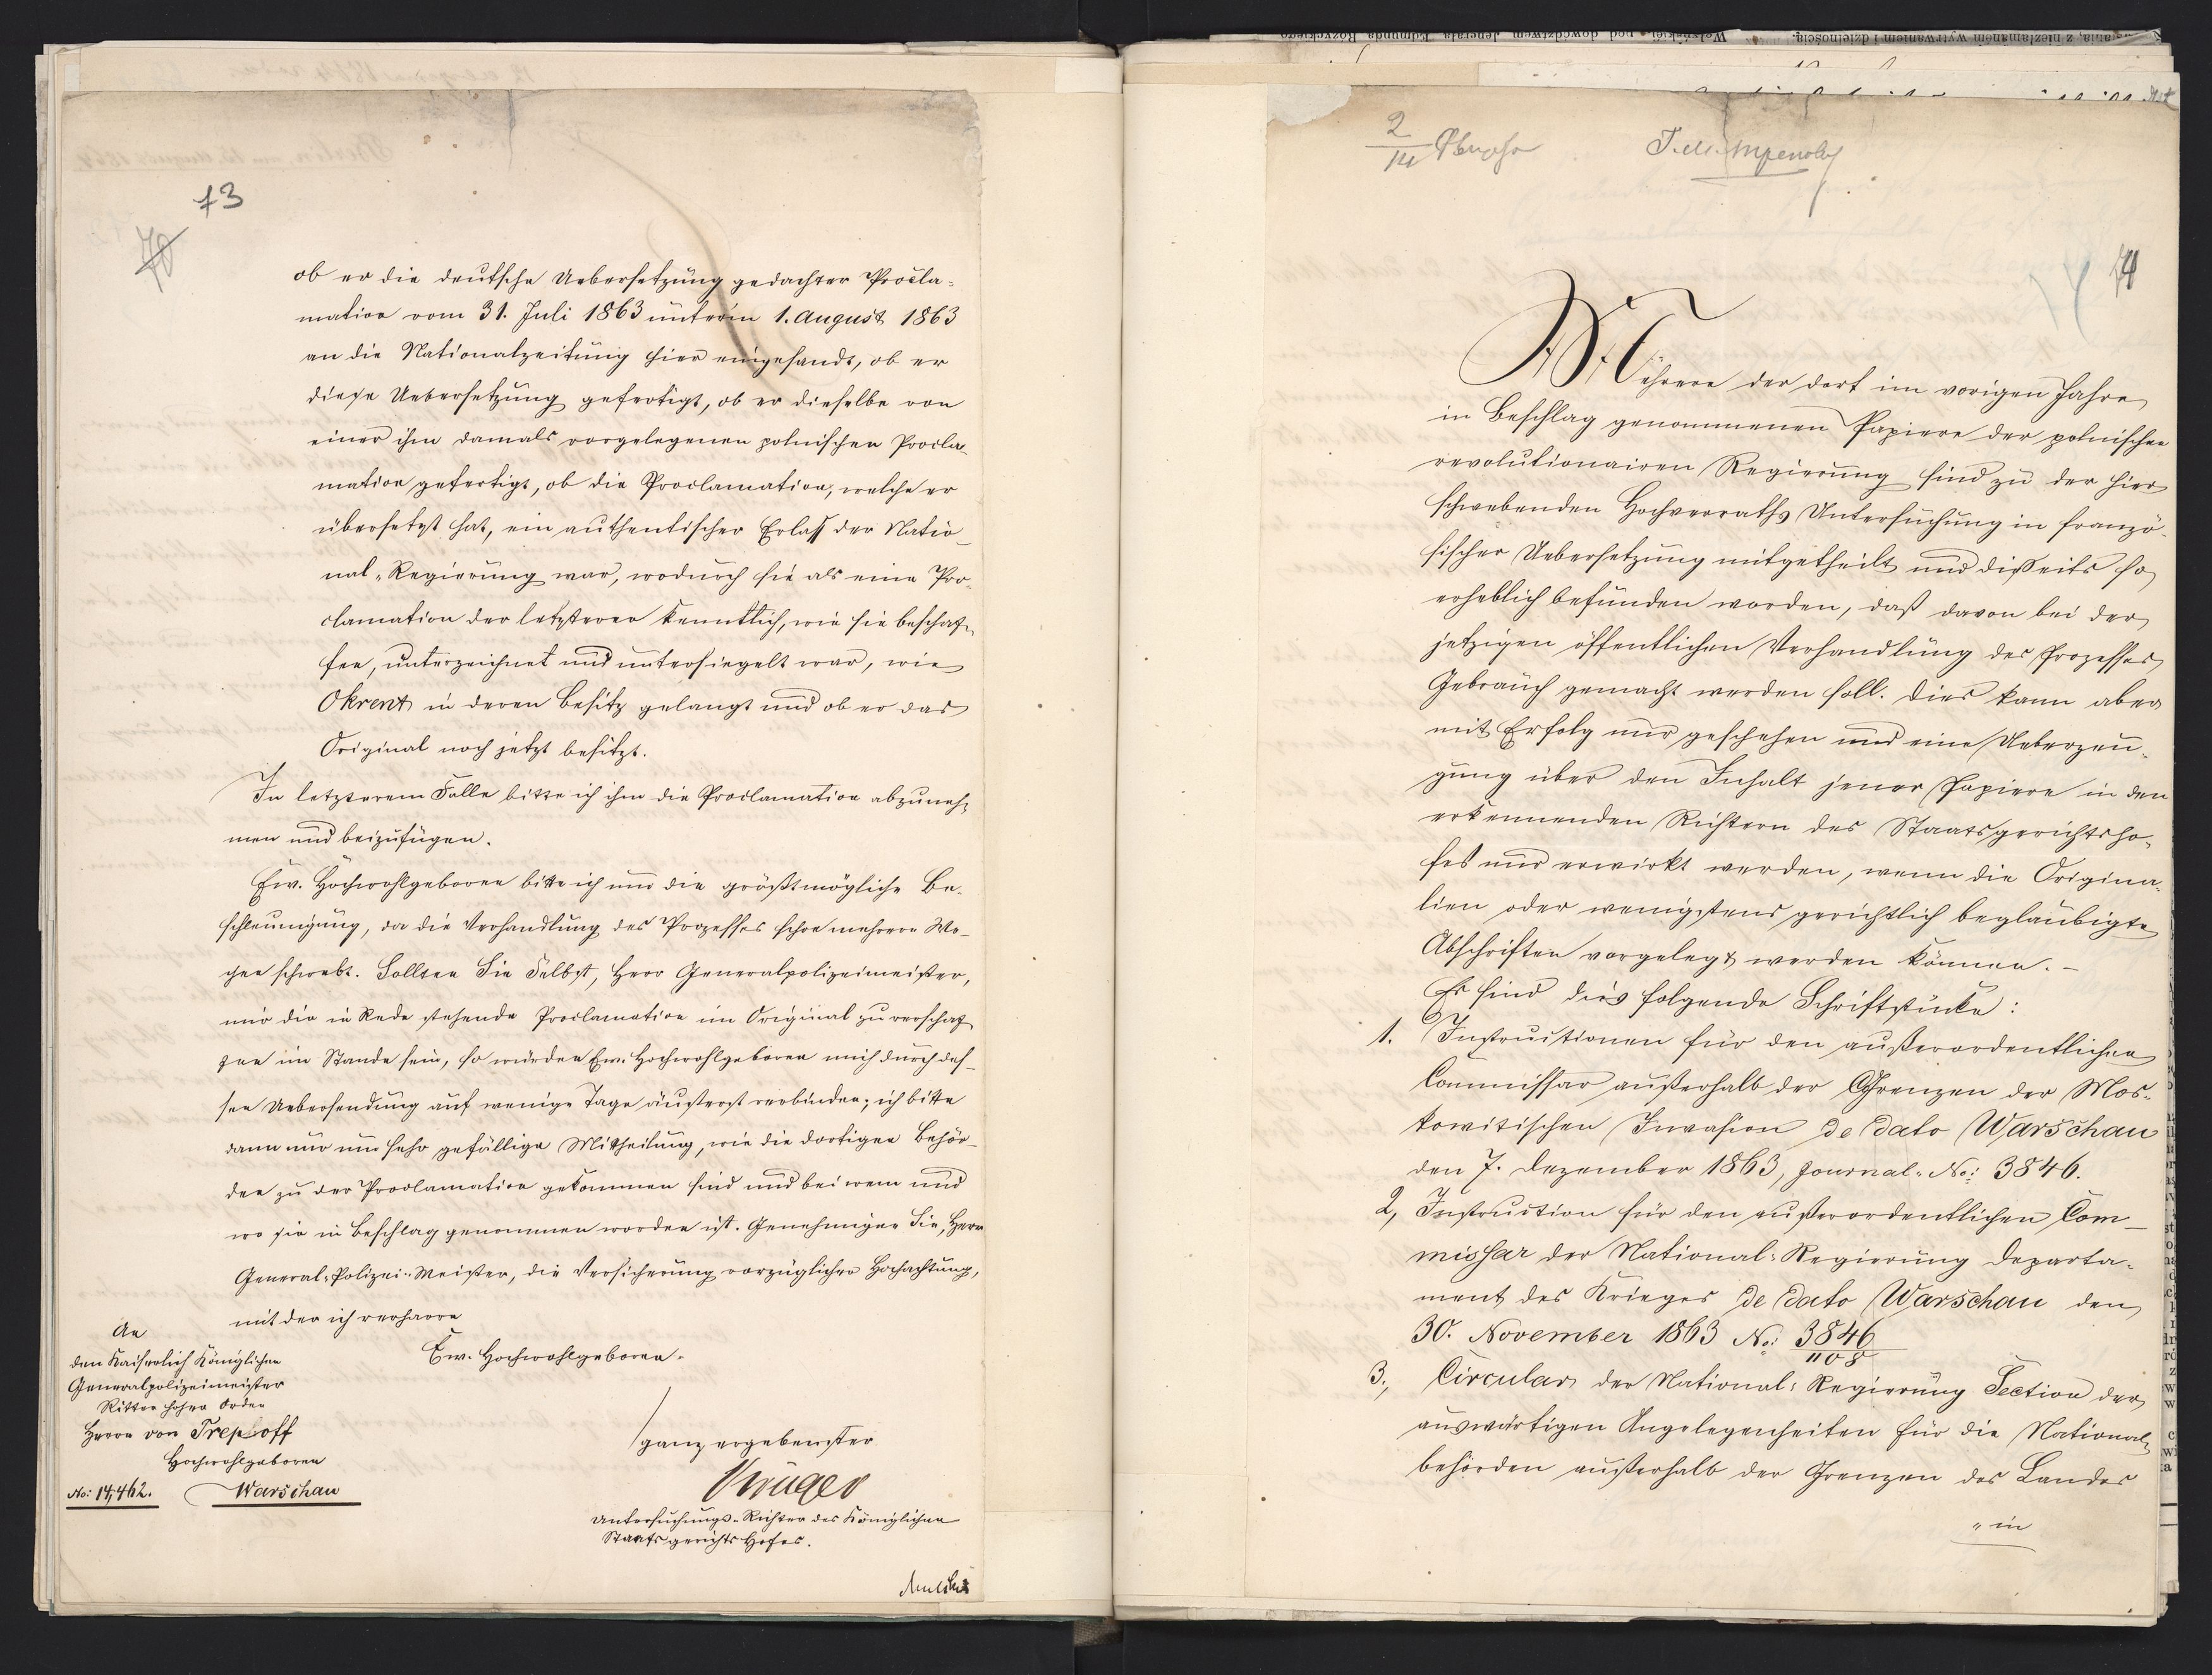 73
70
ob er die deutsche Uebersetzung gedachter Procla-
mation vom 31. Juli 1863 unterm 1. August 1863
an die Nationalzeitung hier eingesandt, ob er
diese Uebersetzung gefertigt, ob er dieselbe von
einer ihm damals vorgelegenen polnischen Procla-
mation gefertigt, ob die Proclamation, welche er
übersetzt hat, ein authentischer Erlaß der Natio-
nal-Regierung war, wodurch sie als eine Pro-
clamation der letzteren kenntlich, wie sie beschaf-
fen, unterzeichnet und untersiegelt war, wie
Okrent in deren Besitz gelangt und ob er das
Original noch jetzt besitzt.
In letzterem Falle bitte ich ihm die Proclamation abzuneh-
men und beizufügen.
Ew. Hochwohlgeboren bitte ich um die größtmögliche Be-
schleunigung, da die Verhandlung des Prozesses schon mehrere Wo-
chen schwebt. Sollten Sie Selbst, Herr Generalpolizeimeister,
mir die in Rede stehende Proclamation im Original zu verschaf-
fen im Stande sein, so würden Ew. Hochwohlgeboren mich durch des-
sen Uebersendung auf wenige Tage äußerst verbinden; ich bitte
dann nur um sehr gefällige Mittheilung, wie die dortigen Behör-
den zu der Proclamation gekommen sind und bei wem und
wo sie in Beschlag genommen worden ist. Genehmigen Sie, Herr
General-Polizei-Meister, die Versicherung vorzüglicher Hochachtung,
mit der ich verharre
Ew. Hochwohlgeboren
ganz ergebenster
Krüger
Untersuchungs-Richter des Königlichen
Staatsgerichts Hofes.
An
den Kaiserlich Königlichen
Generalpolizeimeister
Ritter hoher Orden
Herrn von Trepkoff
Hochwohlgeboren
No: 14,462. Warschau
2
14
74
Mehrere der dort im vorigen Jahre
in Beschlag genommenen Papiere der polnischen
revolutionairen Regierung sind zu der hier
schwebenden Hochverraths Untersuchung in franzö-
sischer Uebersetzung mitgetheilt und disseits so
erheblich befunden worden, daß davon bei der
jetzigen öffentlichen Verhandlung des Prozesses
Gebrauch gemacht werden soll. Dies kann aber
mit Erfolg nur geschehen und eine Ueberzeu-
gung über den Inhalt jener Papiere in den
erkennenden Richtern des Staatsgerichtsho-
fes nur erwirkt werden, wenn die Origina-
lien oder wenigstens gerichtlich beglaubigte
Abschriften vorgelegt werden können. -
Es sind dies folgende Schriftstücke:
1. Instructionen für den außerordentlichen
Commissar außerhalb der Grenzen der Mos-
kowitischen Invasion de dato Warschau
den 7. Dezember 1863, Journal-No: 3846.
2, Instruction für den außerordentlichen Com-
missar der National-Regierung Departa-
ment des Krieges de dato Warschau den
30. November 1863 No: 3846
1108
3., Circular der National-Regierung Section der
auswärtigen Angelegenheiten für die National-
behörden außerhalb der Grenzen des Landes
"in